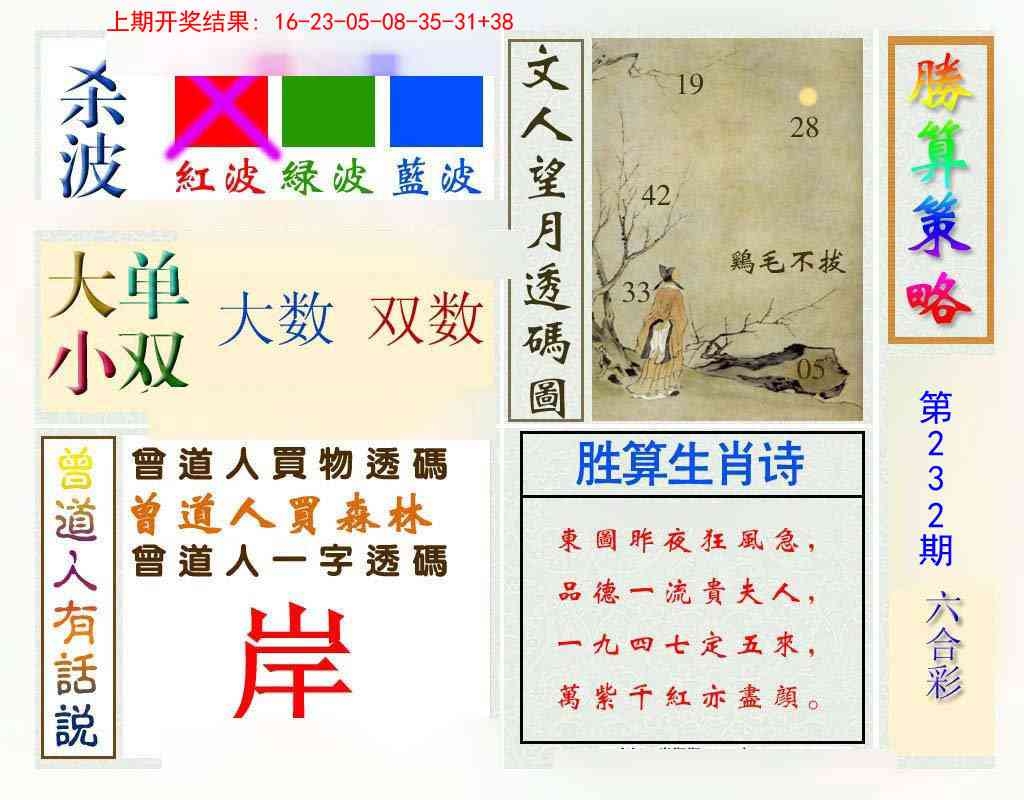 上期开奖结果: 16-23-05-08-35-31+38
杀波
紅波 緑波 藍波
大单
小双
大数 双数
文人望月透碼圖
19
28
42
鷄毛不拔
33
05
勝算策略
第232期
六合彩
曾道人有話説
曾道人買物透碼
曾道人買森林
曾道人一字透碼
岸
胜算生肖诗
東圖昨夜狂風急，
品德一流貴夫人，
一九四七定五來，
萬紫千紅亦盡顔。